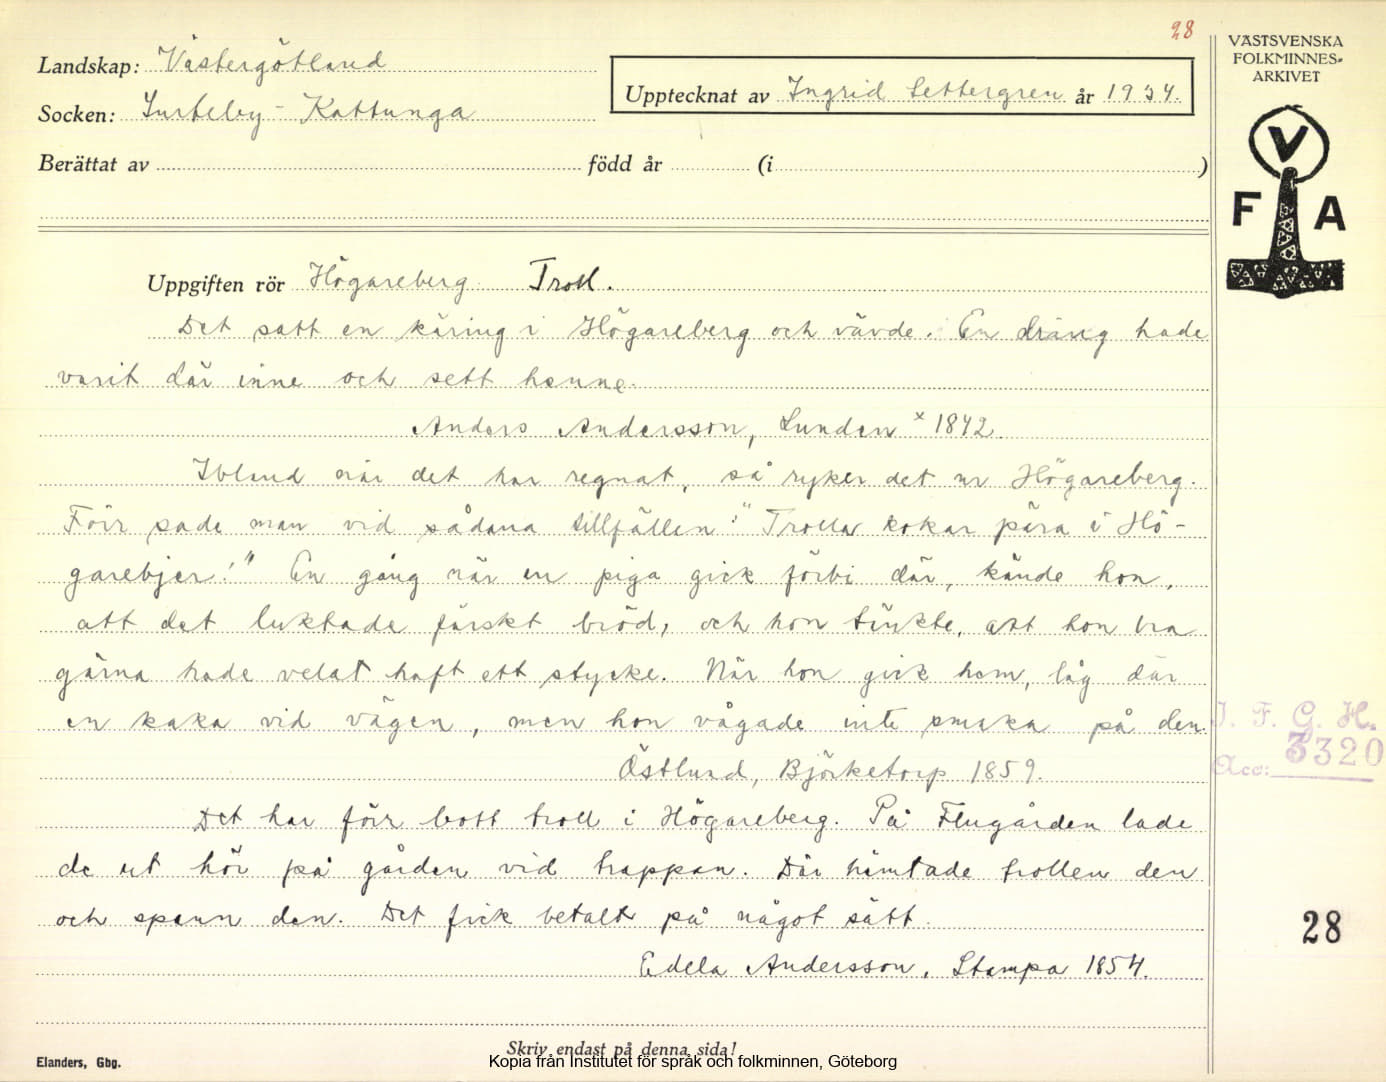 28
Landskap: Västergötland
Upptecknat av Ingrid Settergren år 1934.
Socken: Surteby-Kattunga
Berättat av född år (i )
VÄSTSVENSKA
FOLKMINNES-
ARKIVET
V
F A
Uppgiften rör Högareberg Troll.
Det satt en käring i Högareberg och vävde. En dräng hade
varit där inne och sett henne.
Anders Andersson, Lunden x 1842.
Ibland när det har regnat, så ryker det ur Högareberg.
Förr sade man vid sådana tillfällen: "Trolla kokar pära i Hö-
garebjer!" En gång när en piga gick förbi där, kände hon,
att det luktade färskt bröd, och hon tänkte, att hon bra
gärna hade velat haft ett stycke. När hon gick hem, låg där
en kaka vid vägen, men hon vågade inte smaka på den.
Östlund, Björketorp 1859.
Det har förr bott troll i Högareberg. På Flugården lade
de ut hör på gården vid trappan. Där hämtade trollen den
och spann den. Det fick betalt på något sätt.
Edela Andersson, Stampa 1854.
I. F. G. H.
Acc: 3320
28
Skriv endast på denna sida!
Elanders, Gbg.
Kopia från Institutet för språk och folkminnen, Göteborg